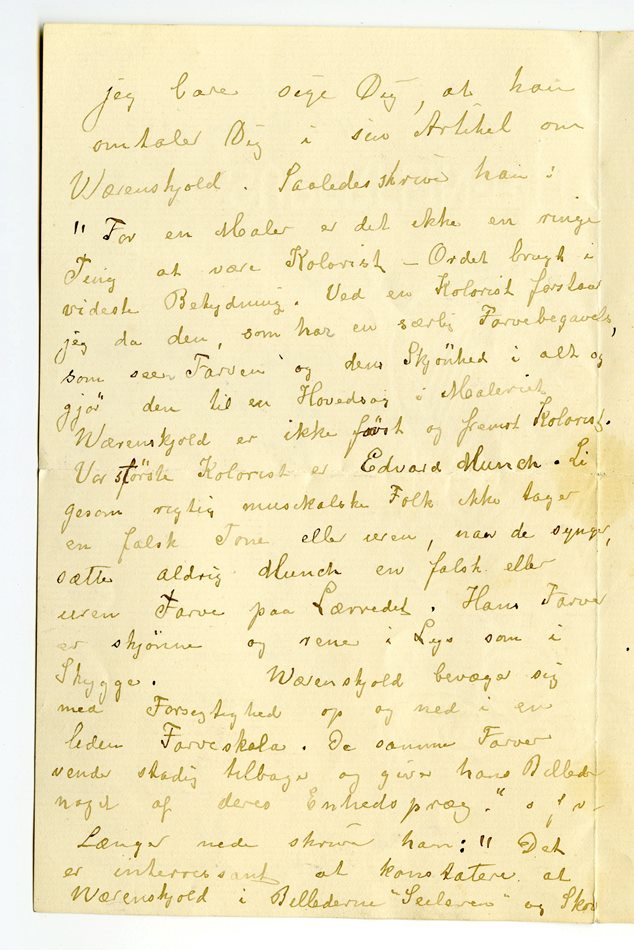 jeg bare sige Dig, at han
omtaler Dig i sin Artikel om
Wærenskjold. Saaledes skriver han:
"For en Maler er det ikke en ringe
Ting at være Kolorist – Ordet brugt i
videste Betydning. Ved en Kolorist forstaar
jeg da den, som har en særlig Farvebegavelse,
som seer Farven og dens Skjönhed i alt og
gjör den til en Hovedsag i Maleriet
Wærenskjold er ikke først og fremst Kolorist.
Vor störste Kolorist er Edvard Munch. Li
gesom rigtig musikalske Folk ikke tager
en falsk Tone eller uren, naar de synger,
sætter aldrig Munch en falsk eller
uren Farve paa Lærredet. Hans Farver
er skjønne og rene i Lys som i
Skygge. Wærenskjold bevæger sig
med Forsegtighed op og ned i en
liden Farveskala. De samme Farver
vender stadig tilbage og giver hans Billeder
noget af deres Enhedspræg." o s v
Længer nede skriver han: "Det
er interressant at konstatere at
Wærenskjold i Billederne "Seileren" og Skov